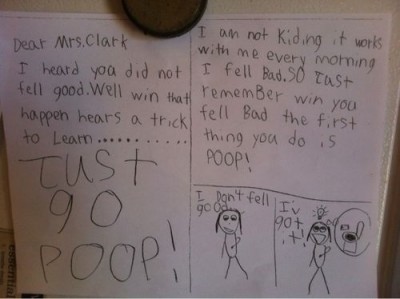 Dear Mrs.Clark
I heard you did not
fell good.Well win that
happen hears a trick
to Learn............
JUST
go
POOP!
I am not Kiding it works
with me every morning
I fell Bad.SO Just
remember win you
fell Bad the first
thing you do is
POOP!
I Don't fell
good...
I'v
got
it!
essential